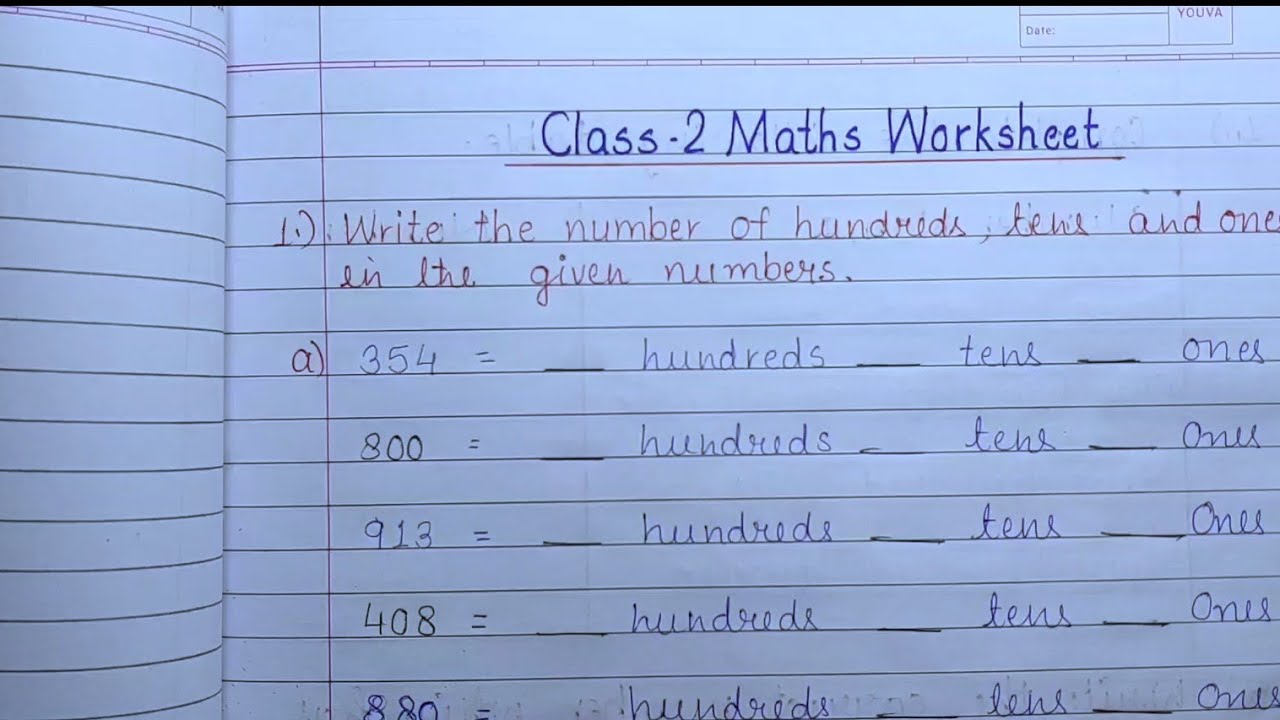 YOUVA
Date:
Class-2 Maths Worksheet
1.) Write the number of hundreds, tens and ones
in the given numbers.
a) 354 = __ hundreds __ tens __ ones
800 = __ hundreds __ tens __ ones
913 = __ hundreds __ tens __ Ones
408 = __ hundreds __ tens __ Ones
880 = __ hundreds __ tens __ Ones